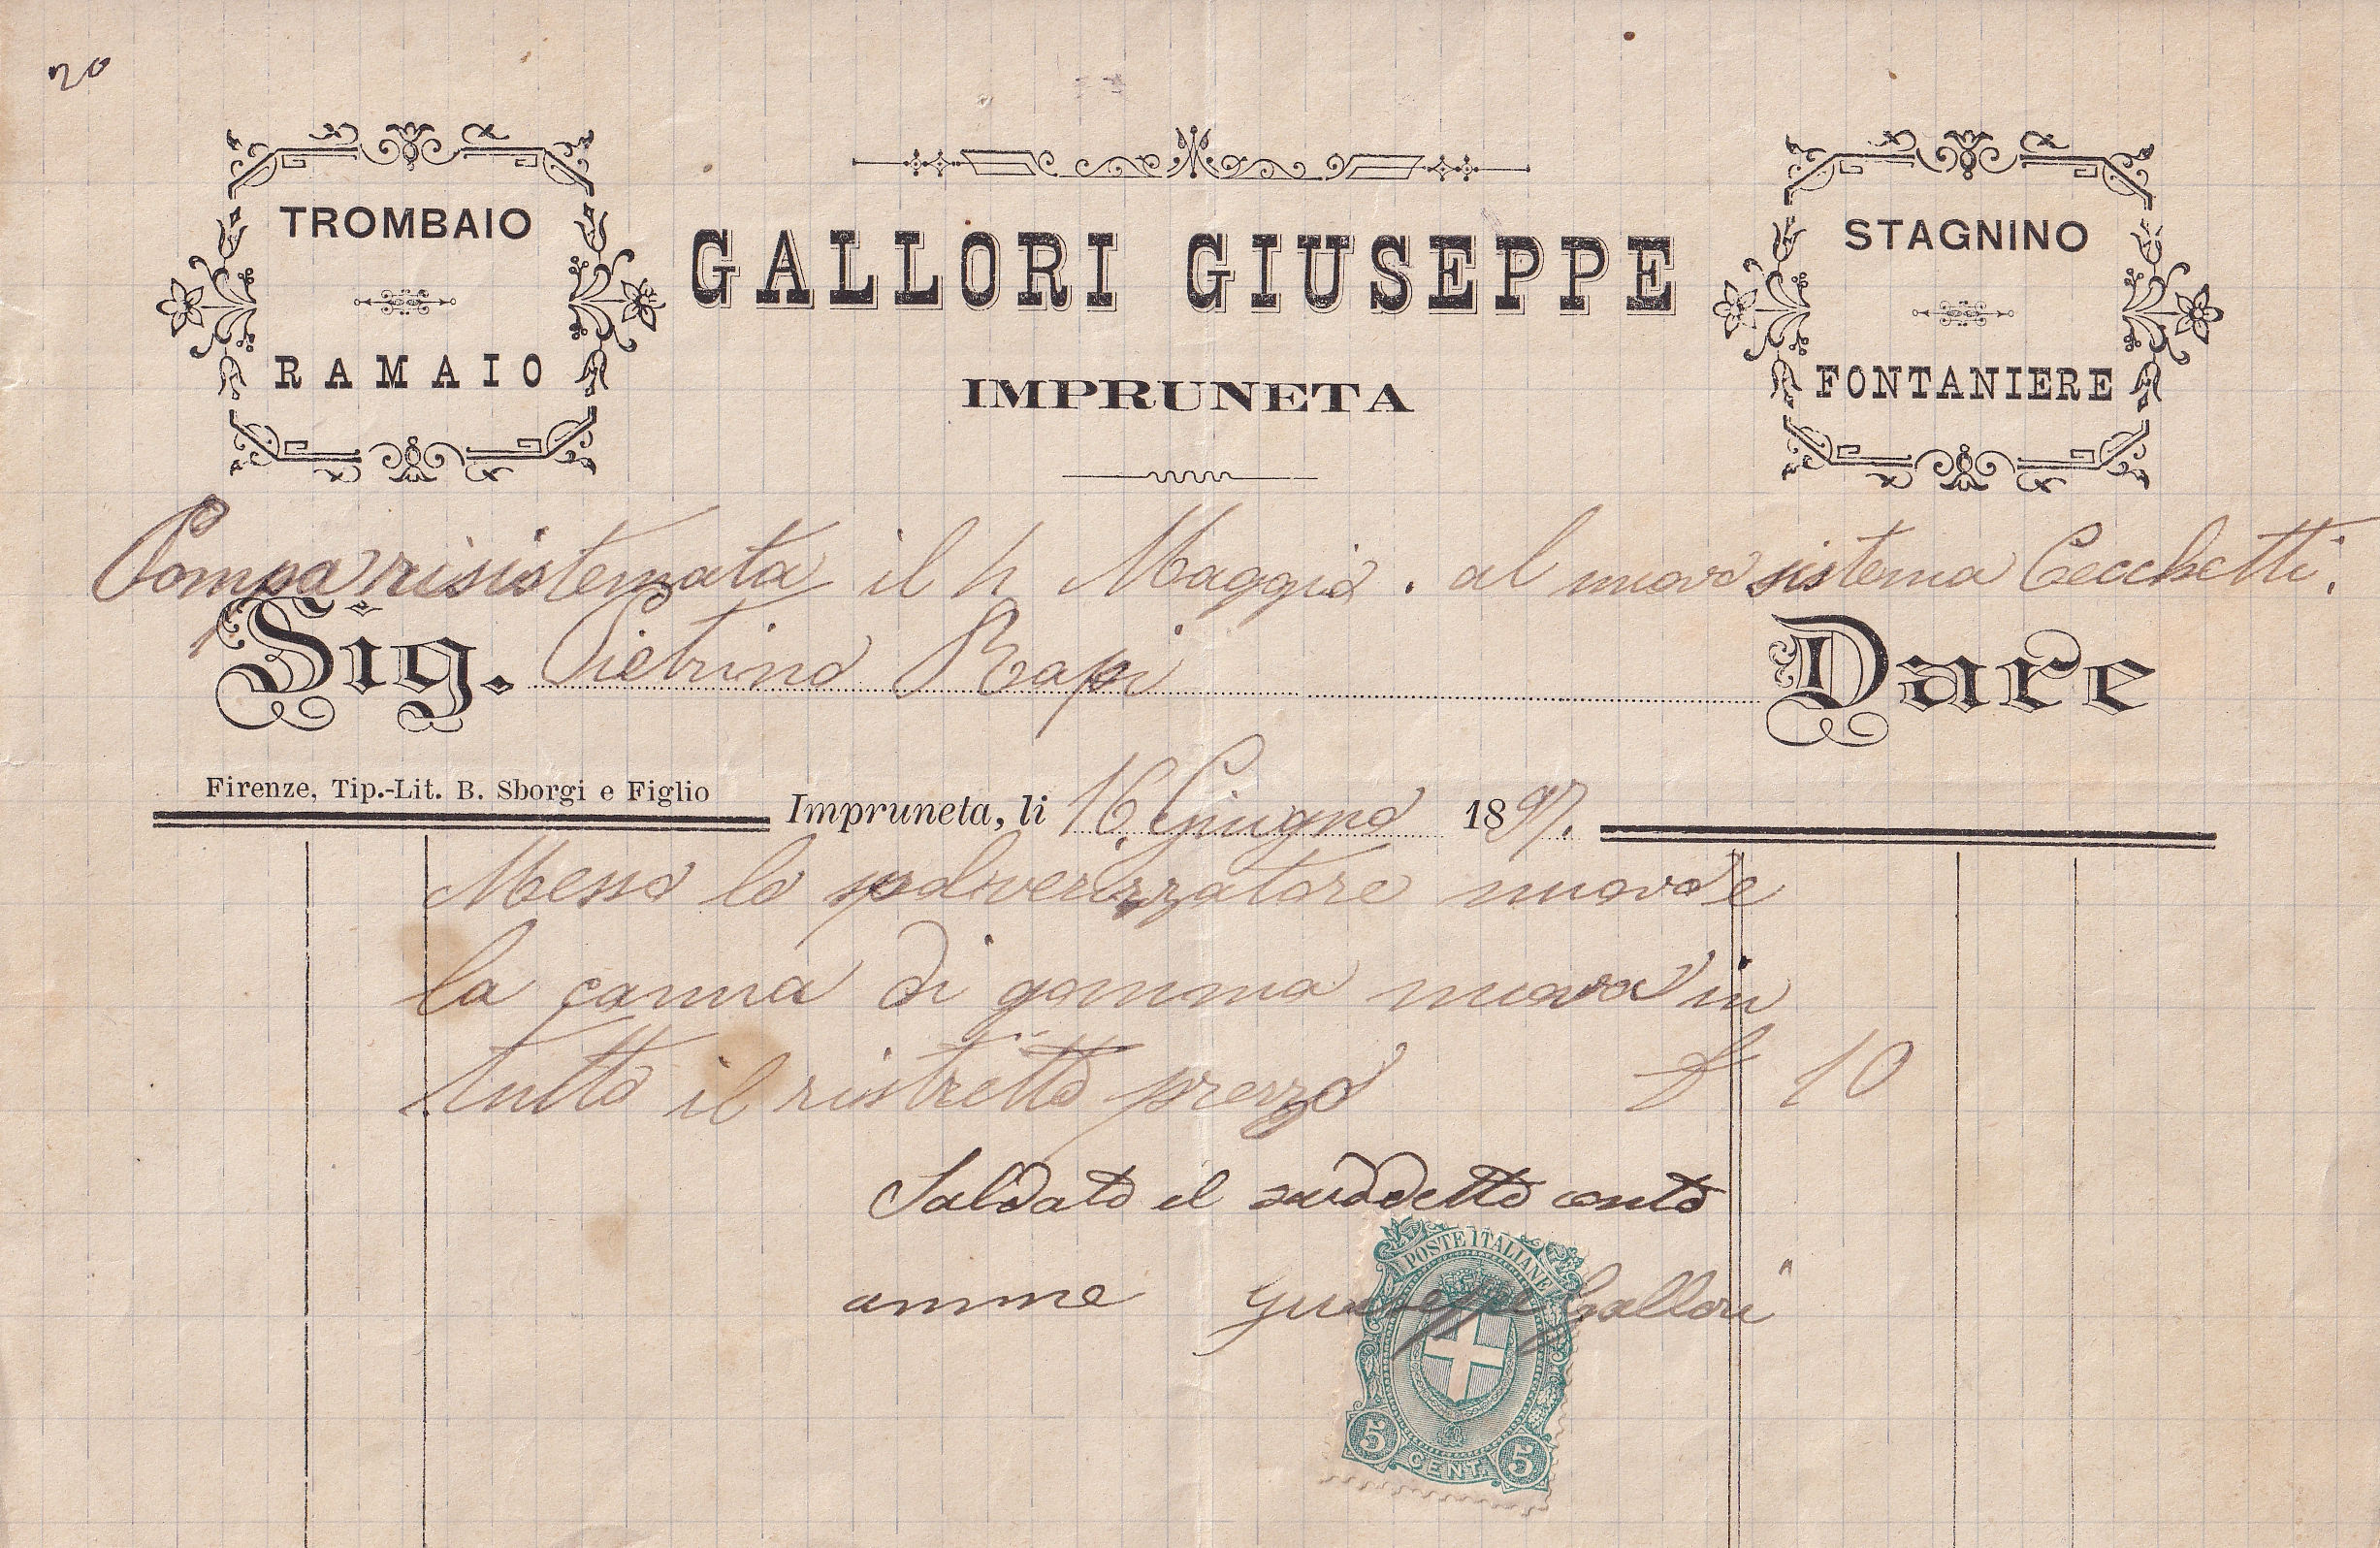 20
TROMBAIO
RAMAIO
GALLORI GIUSEPPE
IMPRUNETA
STAGNINO
FONTANIERE
Pompa risistemata il Maggio. al nuovo sistema Cecchetti.
Sig. Pietrino Rapi Dare
Firenze, Tip.-Lit. B. Sborgi e Figlio
Impruneta, li 16 Giugno 1897.
Messo lo polverizzatore nuovo e
la canna di gomma nuova in
tutto il ristretto prezzo £ 10
Saldato il suddetto conto
amme Giuseppe Gallori
POSTE ITALIANE
5 CENT. 5